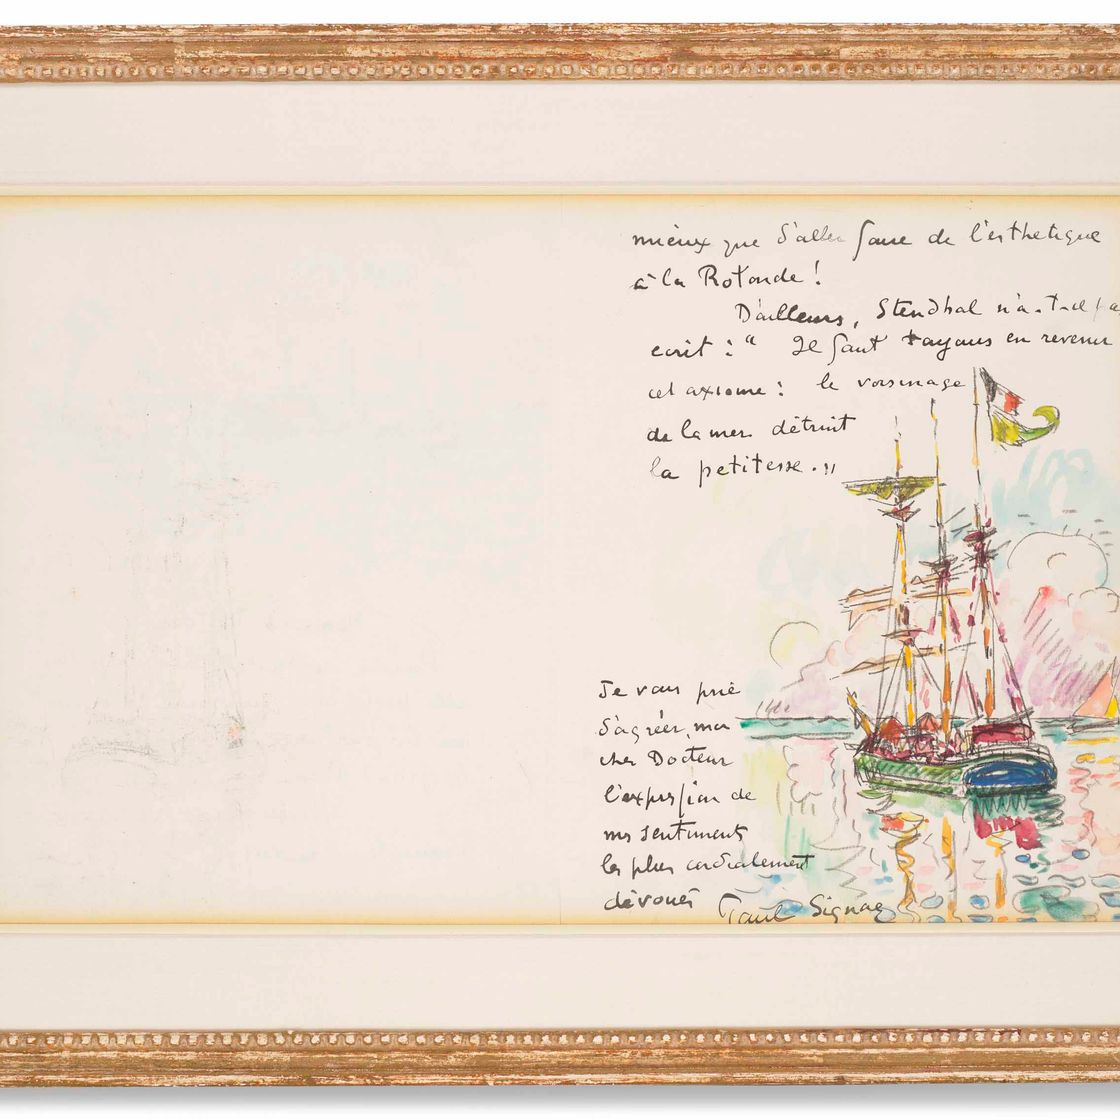 mieux que d'aller faire de l'esthetique
à la Rotonde !
D'ailleurs, Stendhal n'a-t-il pa
ecrit : " Il faut toujours en revenir
cet axiome : le voisinage
de la mer détruit
la petitesse. "
Je vous prie
d'agréer, mon
cher Docteur
l'expression de
mes sentiments
les plus cordialement
dévoués Paul Signac